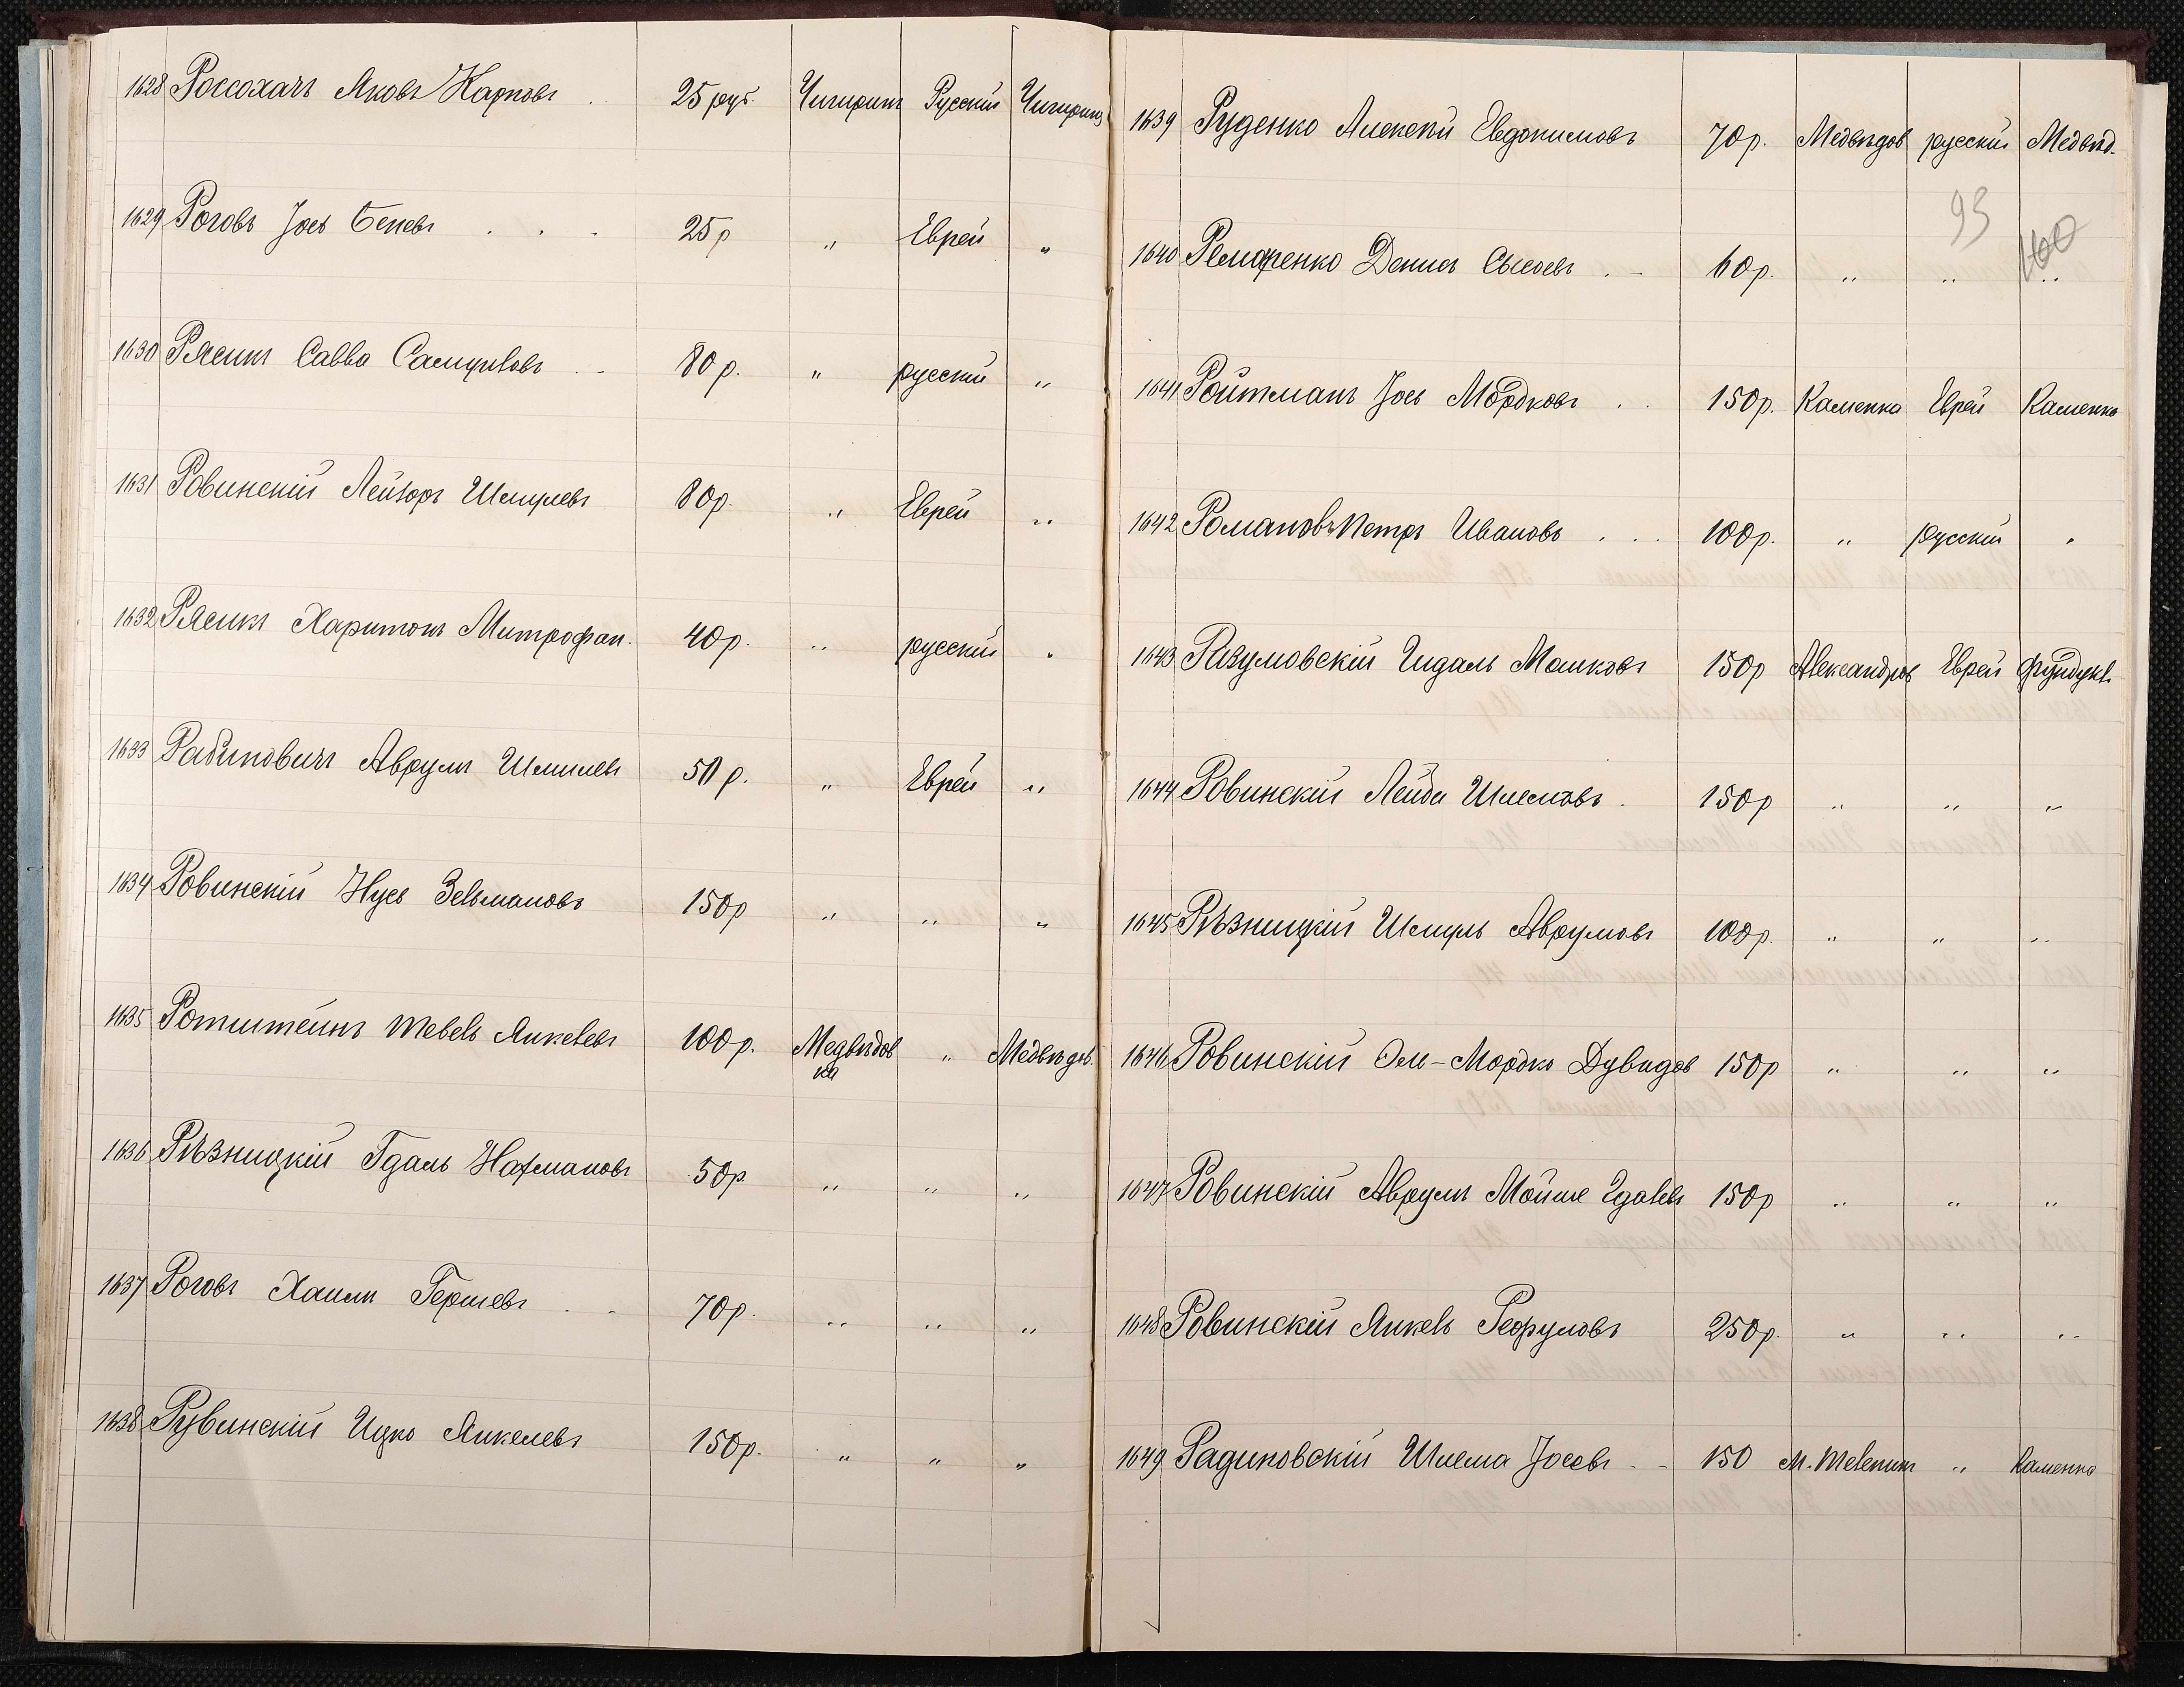 1628 Россохачъ Яковъ Карповъ . 25 руб. Чигиринъ Русскій Чигиринъ
1629 Роговъ Іось Беневъ . . . 25 р „ Еврей „
1630 Рясикъ Савва Самуиловъ . . 80 р. „ русскій „
1631 Ровинскій Лейзоръ Шмулевъ 80р. „ Еврей „
1632 Рясикъ Харитонъ Митрофан. 40 р. „ русскій „
1633 Рабиновичъ Аврумъ Шмилевъ 50 р. „ Еврей „
1634 Ровинскій Нусь Зельмановъ 150р „ „ „
1635 Ротштейнъ Тевель Янкелевъ 100 р. Медвѣдов
ка „ Медвѣдов.
1636 Рѣзницкій Гдаль Нахмановъ 50р „ „ „
1637 Роговъ Хаимъ Гершевъ . . 70р. „ „ „
1638 Рувинскій Ицко Янкелевъ 150р. „ „ „
1639 Руденко Алексѣй Евдокимовъ 70р. Медвѣдов русскій Медвѣд.
93
100
1640 Денисъ Сысоевъ . . 60р. „ „ „
1641 Ройтманъ Іось Мордковъ . . 150р. Каменка Еврей Каменка
1642 Романовъ Петръ Ивановъ . . . 100р. „ русскій „
1643 Разумовскій Гидаль Мошковъ 150р Александров Еврей Фундукл.
1644 Ровинскій Лейба Шлемовъ . 150р „ „ „
1645 Рѣзницкій Шмуль Аврумовъ 100р. „ „ „
1646 Ровинскій Эль-Мордко Дувидов 150р „ „ „
1647 Ровинскій Аврумъ Мойше Гдалевъ 150р „ „ „
1648 Ровинскій Янкель 250р. „ „ „
1649 Радиковскій Шлема Іосевъ . . 150 М. Телепинъ „ Каменка